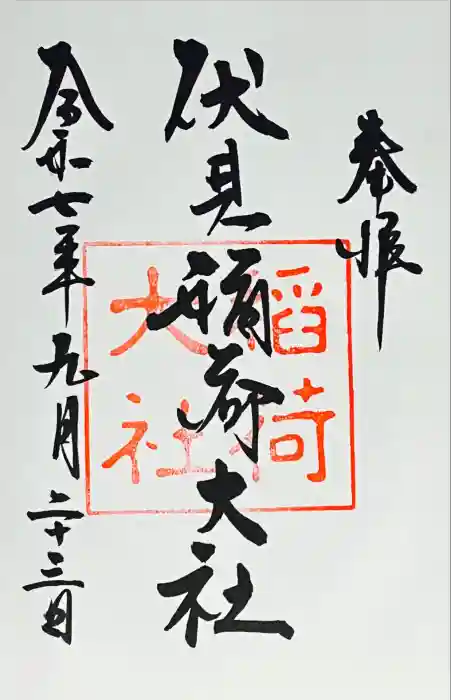 奉拝
伏見稲荷大社
稲荷
大社
令和七年九月二十三日